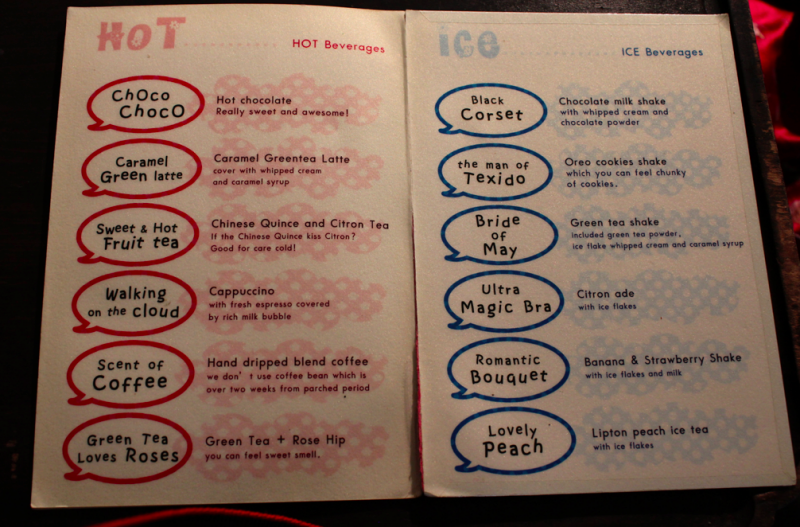 HOT
HOT Beverages
ChOco
ChocO
Hot chocolate
Really sweet and awesome!
Caramel
Green latte
Caramel Greentea Latte
cover with whipped cream
and caramel syrup
Sweet & Hot
Fruit tea
Chinese Quince and Citron Tea
If the Chinese Quince kiss Citron?
Good for care cold!
Walking
on the cloud
Cappuccino
with fresh espresso covered
by rich milk bubble
Scent of
Coffee
Hand dripped blend coffee
we don't use coffee bean which is
over two weeks from parched period
Green Tea
Loves Roses
Green Tea + Rose Hip
you can feel sweet smell.
ice
ICE Beverages
Black
Corset
Chocolate milk shake
with whipped cream and
chocolate powder
the man of
Texido
Oreo cookies shake
which you can feel chunky
of cookies.
Bride
of
May
Green tea shake
included green tea powder,
ice flake whipped cream and caramel syrup
Ultra
Magic Bra
Citron ade
with ice flakes
Romantic
Bouquet
Banana & Strawberry Shake
with ice flakes and milk
Lovely
Peach
Lipton peach ice tea
with ice flakes